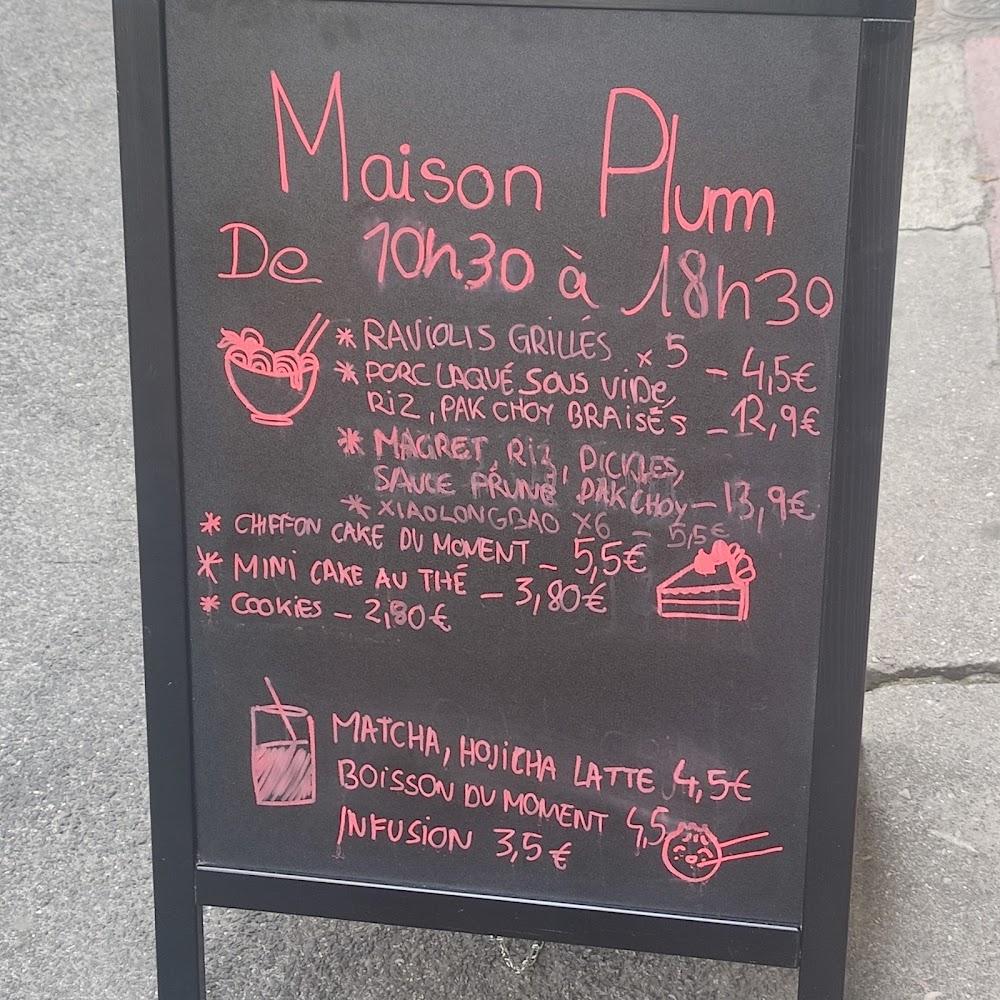 Maison Plum
De 10h30 à 18h30
* RAVIOLIS GRILLÉS x5 - 4,5€
* PORC LAQUÉ SOUS VIDE,
RIZ, PAK CHOY BRAISÉS - 12,9€
* MAGRET, RIZ, PICKLES,
SAUCE PRUNE PAK CHOY - 13,9€
* XIAOLONGBAO X6 - 5,5€
* CHIFFON CAKE DU MOMENT - 5,5€
* MINI CAKE AU THÉ - 3,80€
* COOKIES - 2,80€
MATCHA, HOJICHA LATTE 4,5€
BOISSON DU MOMENT 4,5
INFUSION 3,5€